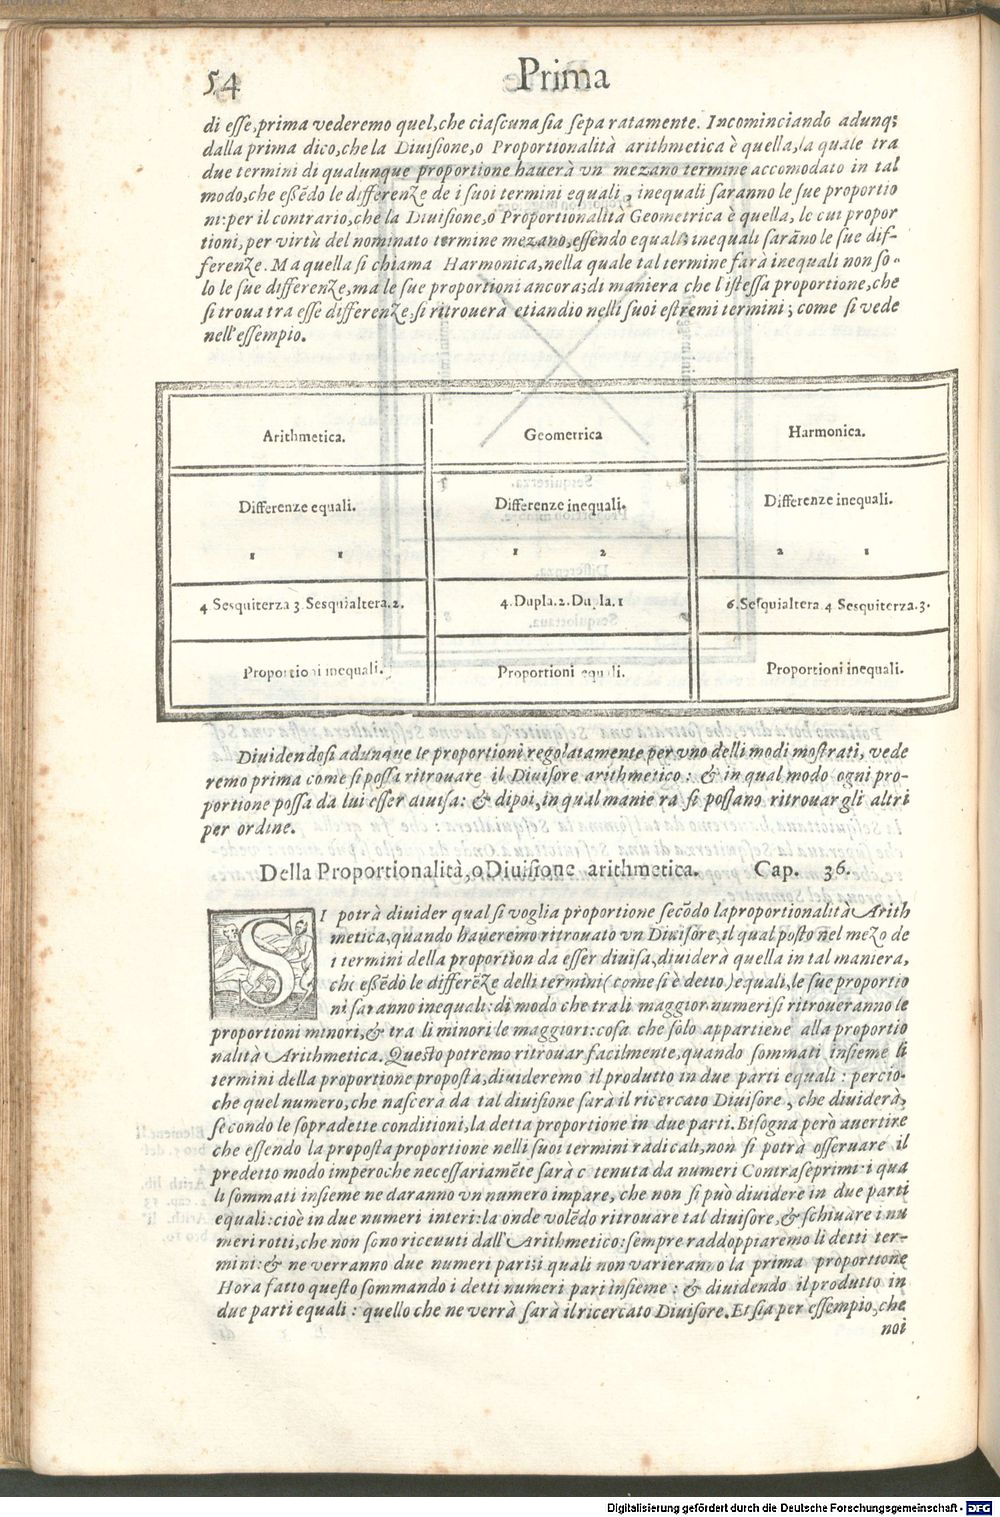 54 Prima
di esse, prima vederemo quel, che ciascuna sia separatamente. Incominciando adunq;
dalla prima dico, che la Diuisione, o Proportionalità arithmetica è quella, la quale tra
due termini di qualunque proportione hauerà vn mezano termine accomodato in tal
modo, che eßẽdo le differenze de i suoi termini equali, inequali saranno le sue proportio
ni: per il contrario, che la Diuisione, ò Proportionalità Geometrica è quella, le cui propor
tioni, per virtù del nominato termine mezano, essendo equali; inequali sarãno le sue dif-
ferenze. Ma quella si chiama Harmonica, nella quale tal termine farà inequali non so-
lo le sue differenze, ma le sue proportioni ancora; di maniera che l'istessa proportione, che
si troua tra esse differenze, si ritrouerà etiandio nelli suoi estremi termini; come si vede
nell'essempio.
Arithmetica. Geometrica Harmonica.
Differenze equali. Differenze inequali. Differenze inequali.
1 1 1 2 2 1
4 Sesquiterza 3 Sesquialtera. 2. 4. Dupla. 2. Dupla. 1 6. Sesquialtera 4 Sesquiterza. 3.
Proportioni inequali. Proportioni equali. Proportioni inequali.
Diuidendosi adunque le proportioni regolatamente per vno delli modi mostrati, vede
remo prima come si possa ritrouare il Diuisore arithmetico: & in qual modo ogni pro-
portione possa da lui esser diuisa: & dipoi, in qual manie ra si possano ritrouar gli altri
per ordine.
Della Proportionalità, o Diuisione arithmetica. Cap. 36.
SI potrà diuider qual si voglia proportione secõdo la proportionalità Arith
metica, quando haueremo ritrouato vn Diuisore, il qual posto nel mezo de
i termini della proportion da esser diuisa, diuiderà quella in tal maniera,
che eßẽdo le differẽze delli termini (come si è detto) equali, le sue proportio
ni saranno inequali: di modo che tra li maggior numeri si ritroueranno le
proportioni minori, & tra li minori le maggiori: cosa che solo appartiene alla proportio
nalità Arithmetica. Questo potremo ritrouar facilmente, quando sommati insieme li
termini della proportione proposta, diuideremo il produtto in due parti equali: percio-
che quel numero, che nascerà da tal diuisione sarà il ricercato Diuisore, che diuiderà,
secondo le sopradette conditioni, la detta proportione in due parti. Bisogna però auertire
che essendo la proposta proportione nelli suoi termini radicali, non si potrà osseruare il
predetto modo imperoche necessariamẽte sarà c tenuta da numeri Contraseprimi: i qua
li sommati insieme ne daranno vn numero impare, che non si può diuidere in due parti
equali: cioè in due numeri interi: la onde volẽdo ritrouare tal diuisore, & schiuare i nu
meri rotti, che non sono riceuuti dall'Arithmetico: sempre raddoppiaremo li detti ter-
mini: & ne verranno due numeri pari; i quali non varieranno la prima proportione
Hora fatto questo sommando i detti numeri pari insieme: & diuidendo il produtto in
due parti equali: quello che ne verrà sarà il ricercato Diuisore. Et sia per essempio, che
noi
Digitalisierung gefördert durch die Deutsche Forschungsgemeinschaft - DFG